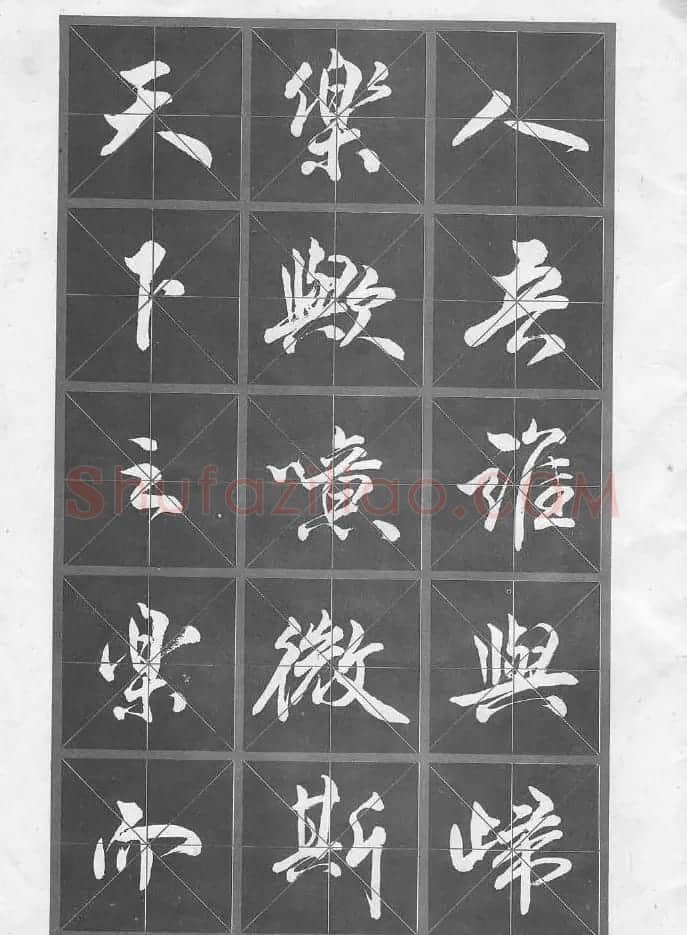 天下之樂而
樂歟噫微斯
人吾誰與歸
Shufaziliao.COM